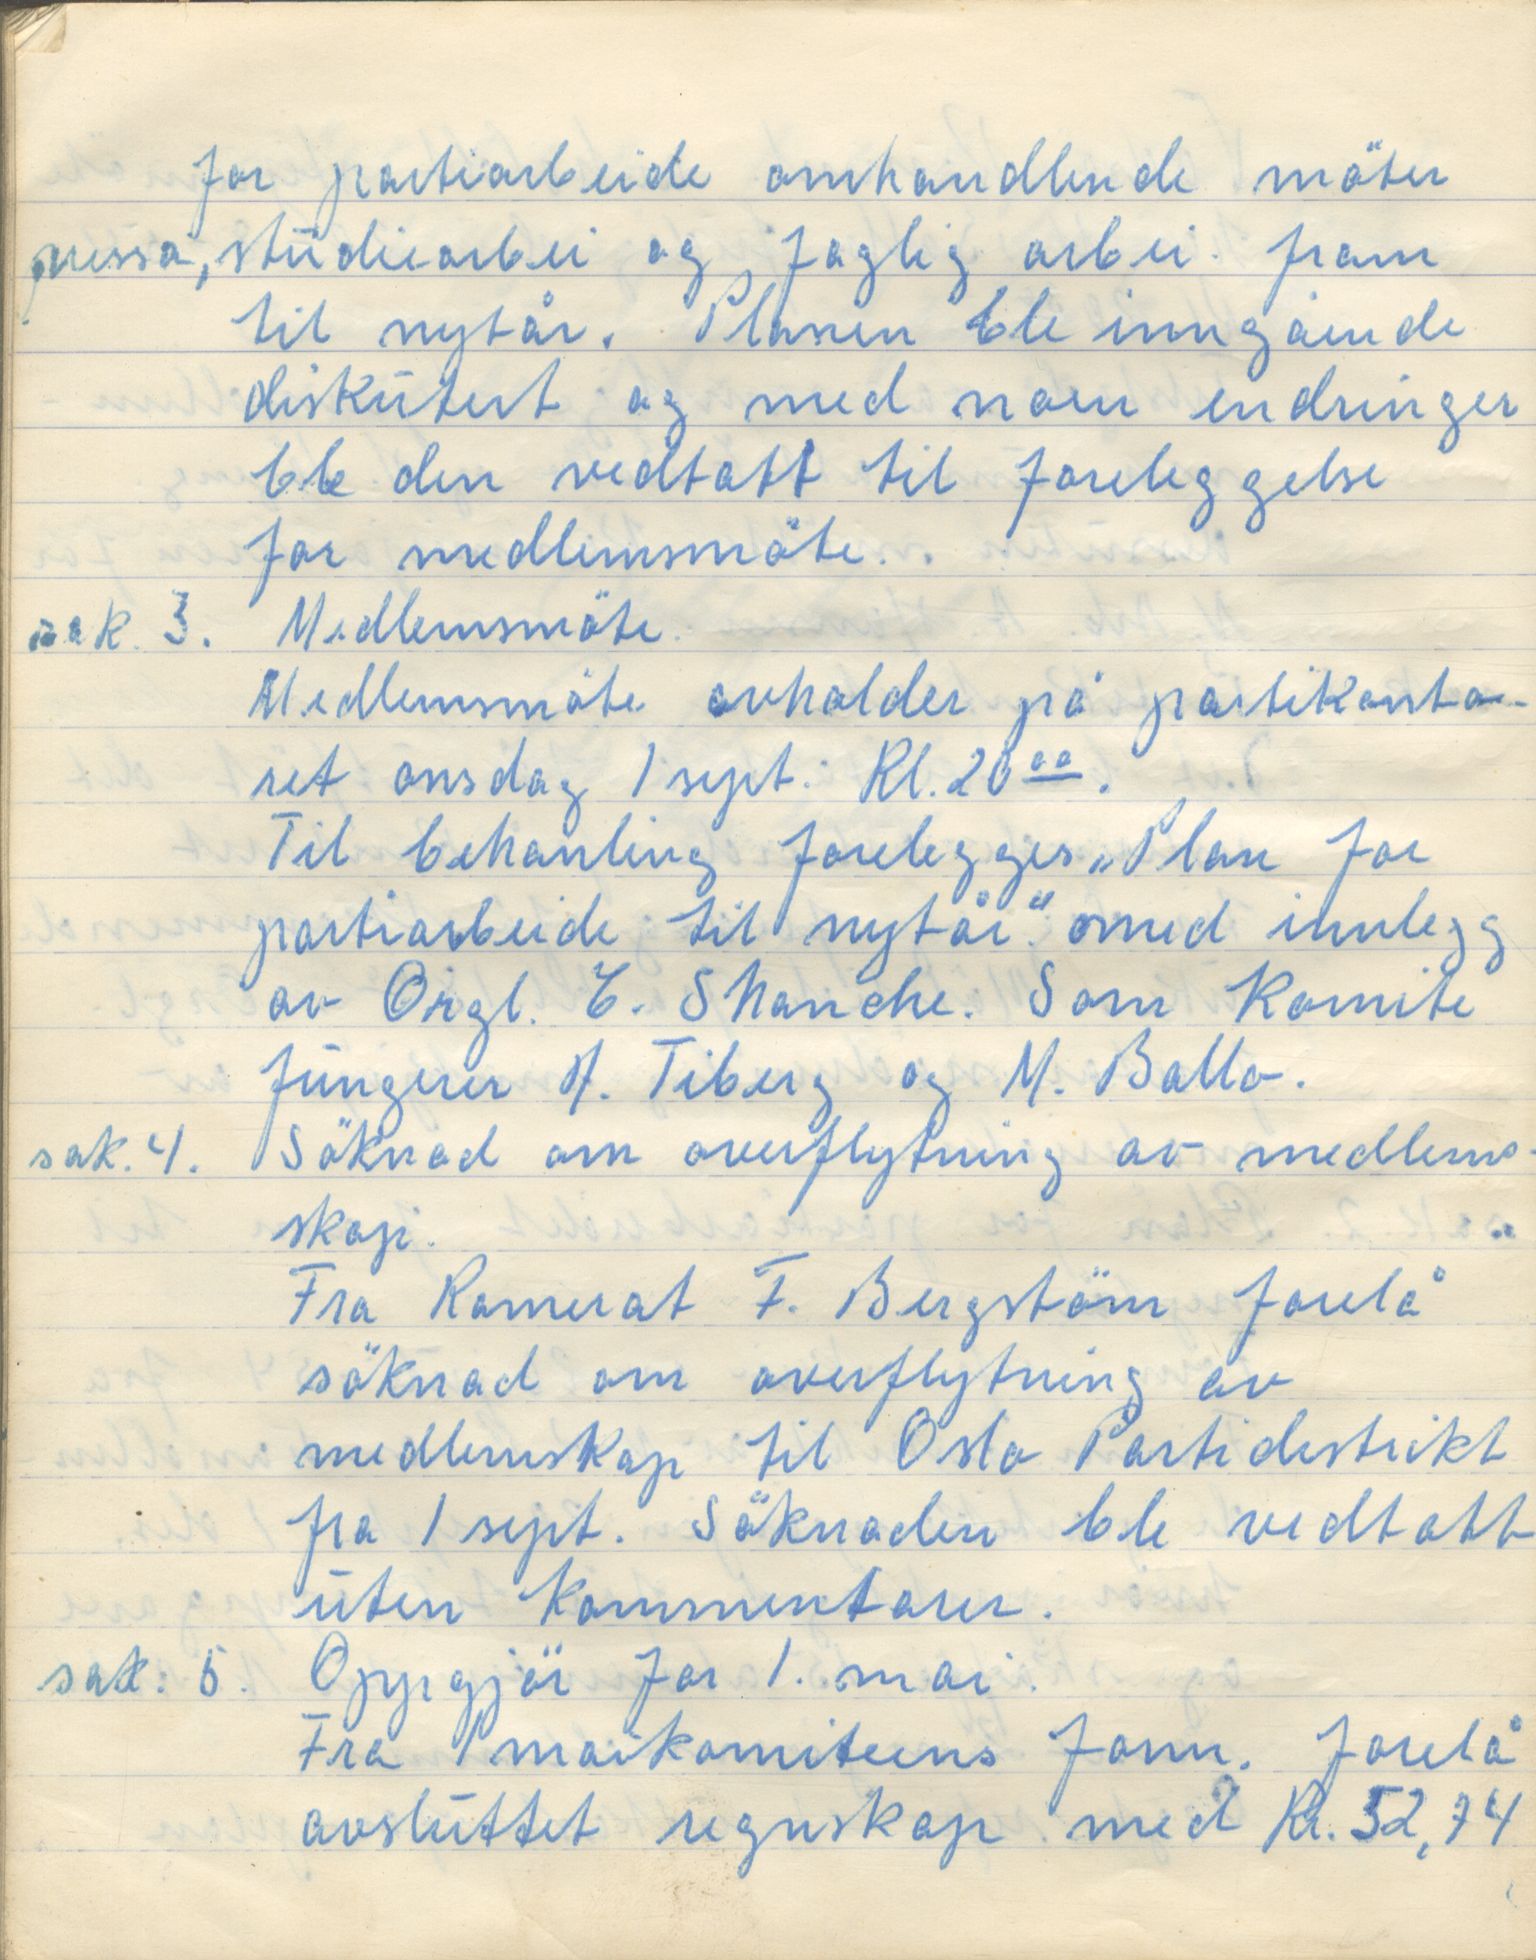 for partiarbeide omhandlende möter
pressa, studiearbei og faglig arbei. fram
til nytår. Planen ble inngående
diskutert og med noen endringer
ble den vedtatt til foreleggelse
for medlemsmöte.
sak. 3. Medlemsmöte.
Medlemsmöte avholder på partikonto-
ret onsdag 1 sept. Kl. 20 00.
Til behanling forelegges „Plan for
partiarbeide til nytår“ med innlegg
av Orgl. E. Shanche. Som Komite
fungerer A. Tiberg og M. Ballo.
sak. 4. Söknad om overflytning av medlems-
skap.
Fra Kamerat F. Bergstöm forelå
söknad om overflytning av
medlemskap til Oslo Partidestrikt
fra 1 sept. Söknaden ble vedtatt
uten Kommentarer.
sak: 5. Oppgjör for 1. mai.
Fra 1 maikomiteens form. forelå
avsluttet regnskap med Kr. 52,74